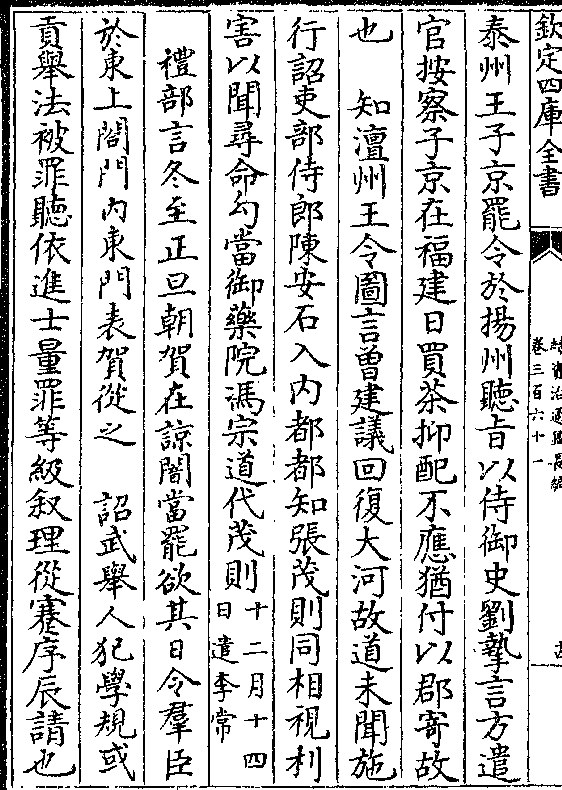 欽定四庫全書
續資治通鑑長編
卷三百六十一
泰州王子京罷令於揚州聽旨以侍御史劉摯言方遣
官按察子京在福建日買茶抑配不應猶付以郡寄故
也　知澶州王令圖言曽建議回復大河故道未聞施
行詔吏部侍郎陳安石入内都都知張茂則同相視利
害以聞尋命勾當御藥院馮宗道代茂則十二月十四日遣李常
禮部言冬至正旦朝賀在諒闇當罷欲其日令羣臣
於東上閤門内東門表賀從之　詔武舉人犯學規或
貢舉法被罪聽依進士量罪等級叙理從蹇序辰請也